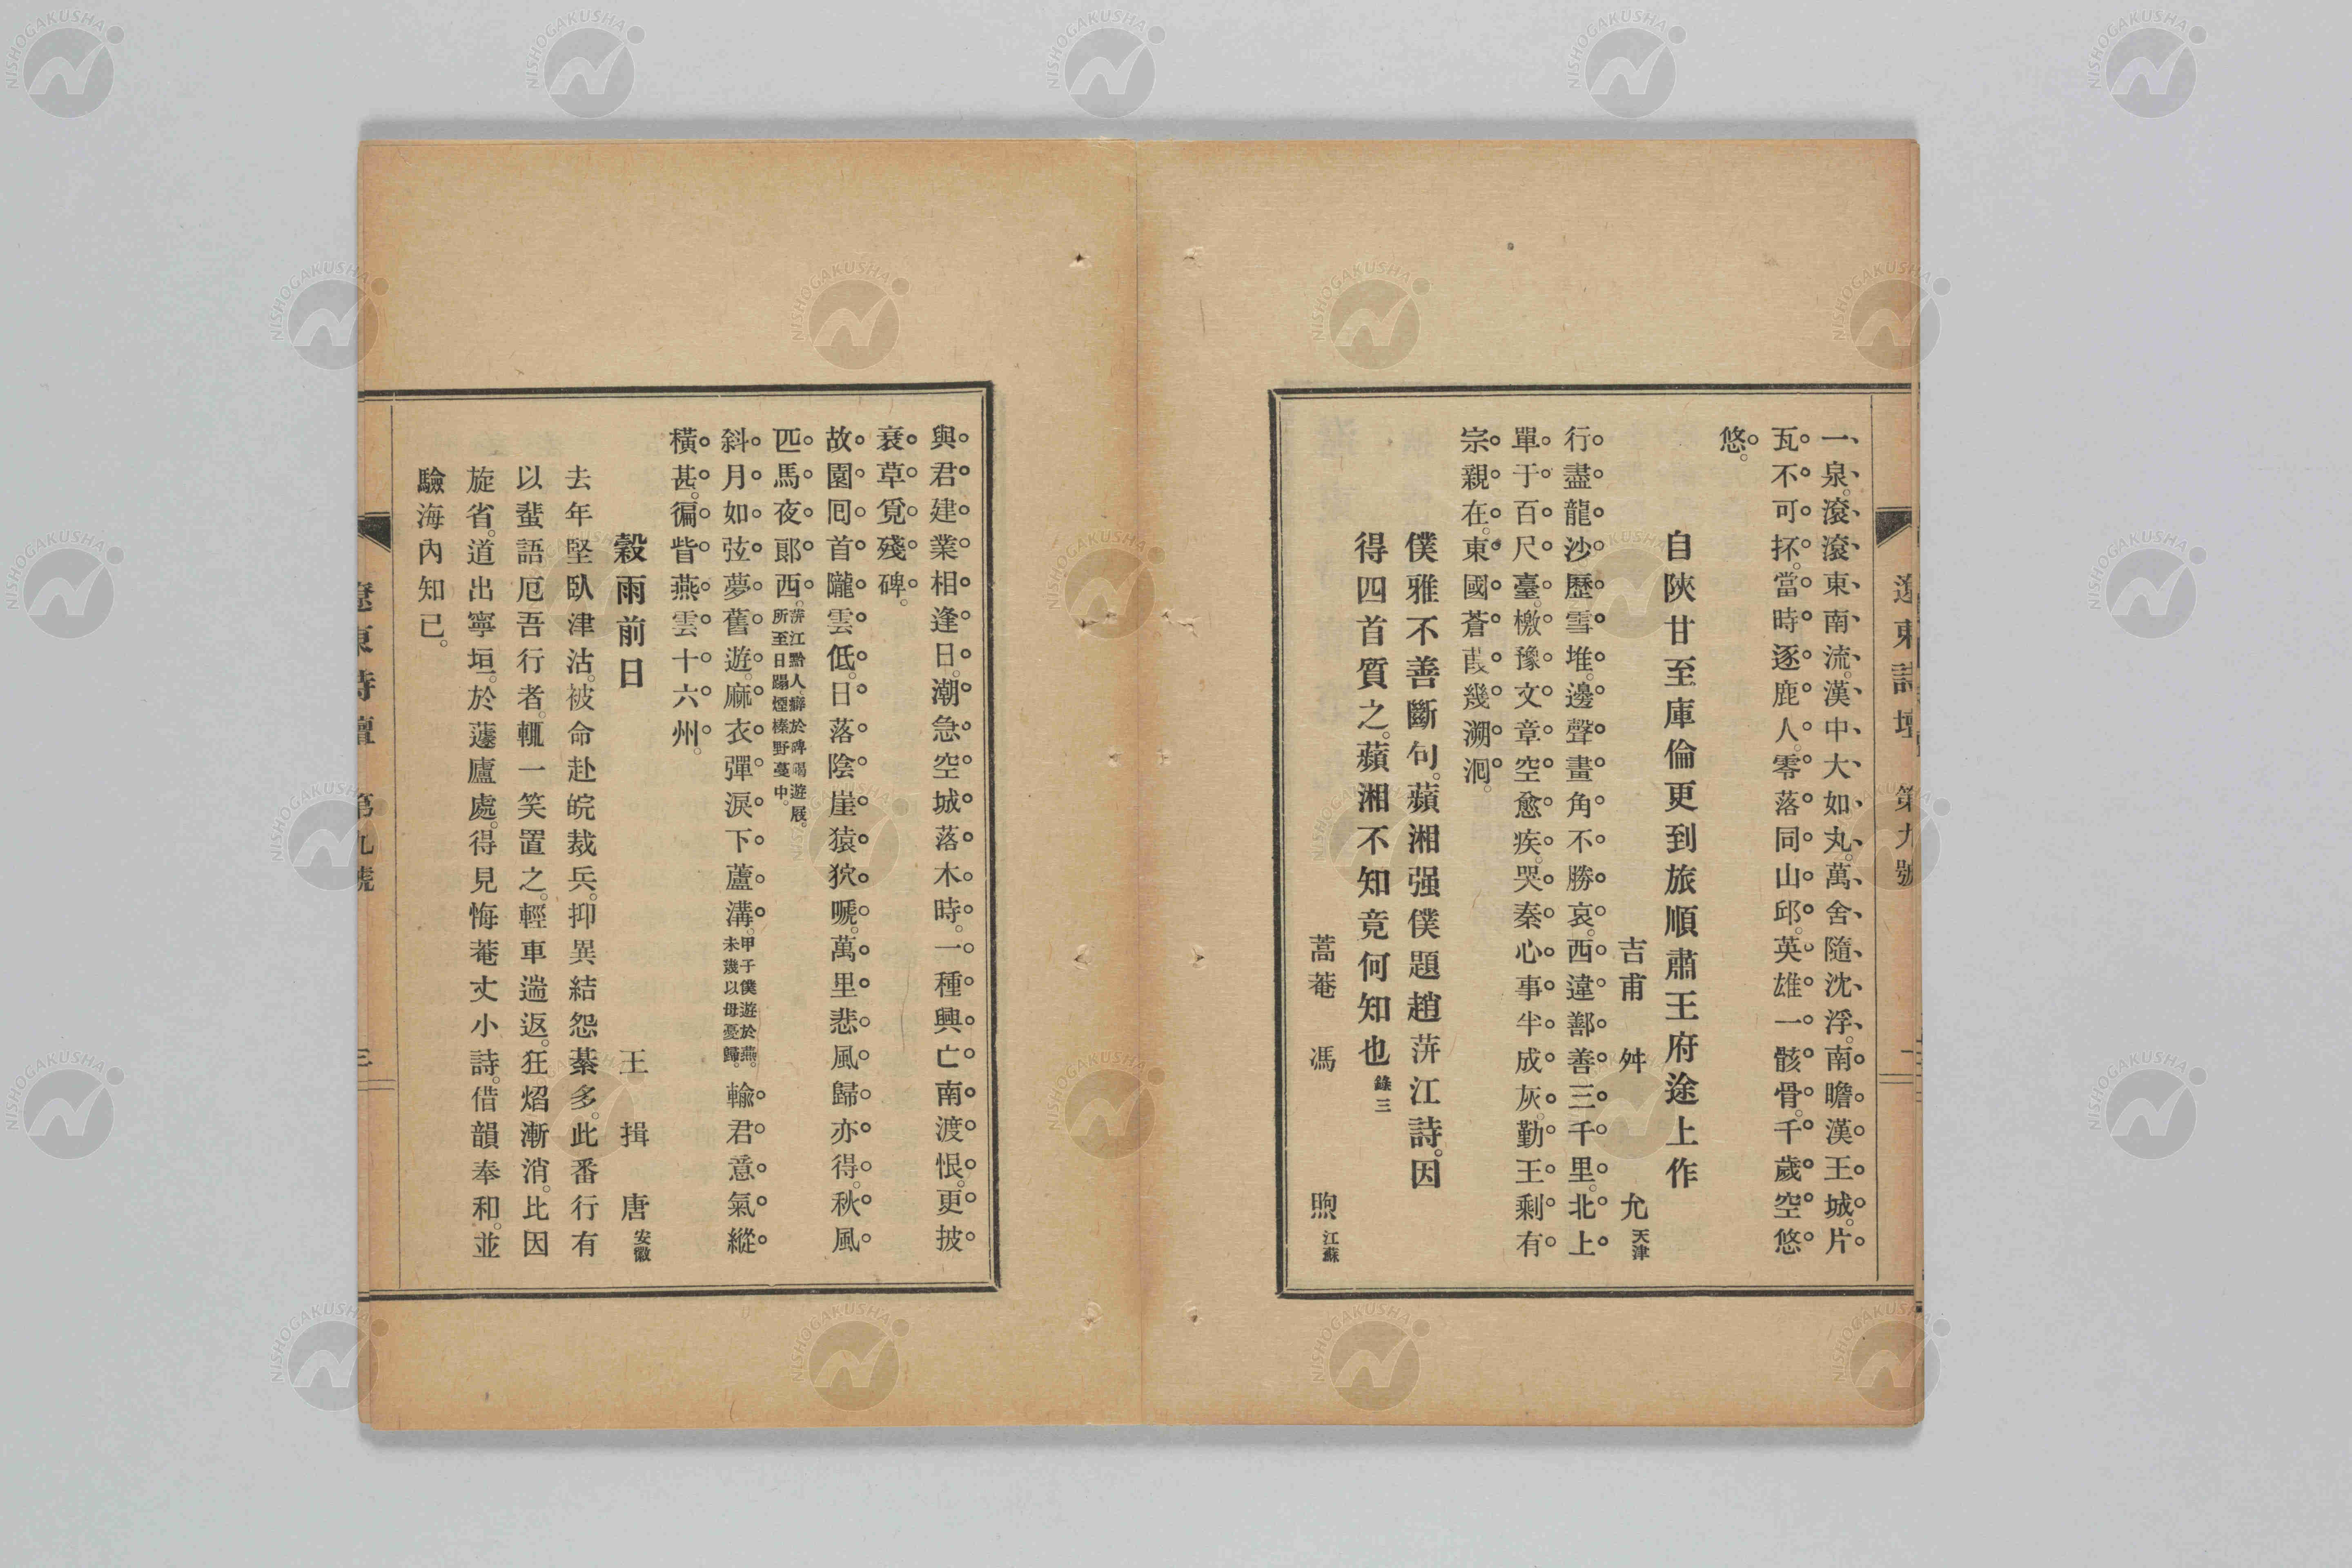 遼東詩壇 第九號 二
一泉滾滾東南流。漢中大如丸。萬舍隨沈浮。南瞻漢王城。片
瓦不可抔。當時逐鹿人。零落同山邱。英雄一骸骨。千歲空悠
悠。
自陝甘至庫倫更到旅順肅王府途上作
吉甫 舛 允 天津
行盡龍沙歷雪堆。邊聲畫角不勝哀。西違鄯善三千里。北上
單于百尺臺。檄豫文章空愈疾。哭秦心事半成灰。勤王剩有
宗親在。東國蒼葭幾溯洄。
僕雅不善斷句。蘋湘强僕題趙湃江詩。因
得四首質之。蘋湘不知竟何知也 錄三
蒿菴 馮 煦 江蘇
與君建業相逢日。潮急空城落木時。一種興亡南渡恨。更披
衰草覓殘碑。
故園囘首隴雲低。日落陰崖猿狖嗁。萬里悲風歸亦得。秋風
匹馬夜郞西。湃江黔人癖於碑碣遊屐。
所至日蹋煙榛野蔓中。
斜月如弦夢舊遊。麻衣彈淚下蘆溝。甲子僕遊於燕。
未幾以母憂歸。輸君意氣縱
橫甚。徧眥燕雲十六州。
穀雨前日
王揖唐 安徽
去年堅臥津沽。被命赴皖裁兵。抑異結怨綦多。此番行有
以蜚語厄吾行者。輒一笑置之。輕車遄返。狂熖漸消。比因
旋省。道出寧垣。於蘧廬處。得見悔菴丈小詩。借韻奉和。並
驗海內知已。
遼東詩壇 第九號 三